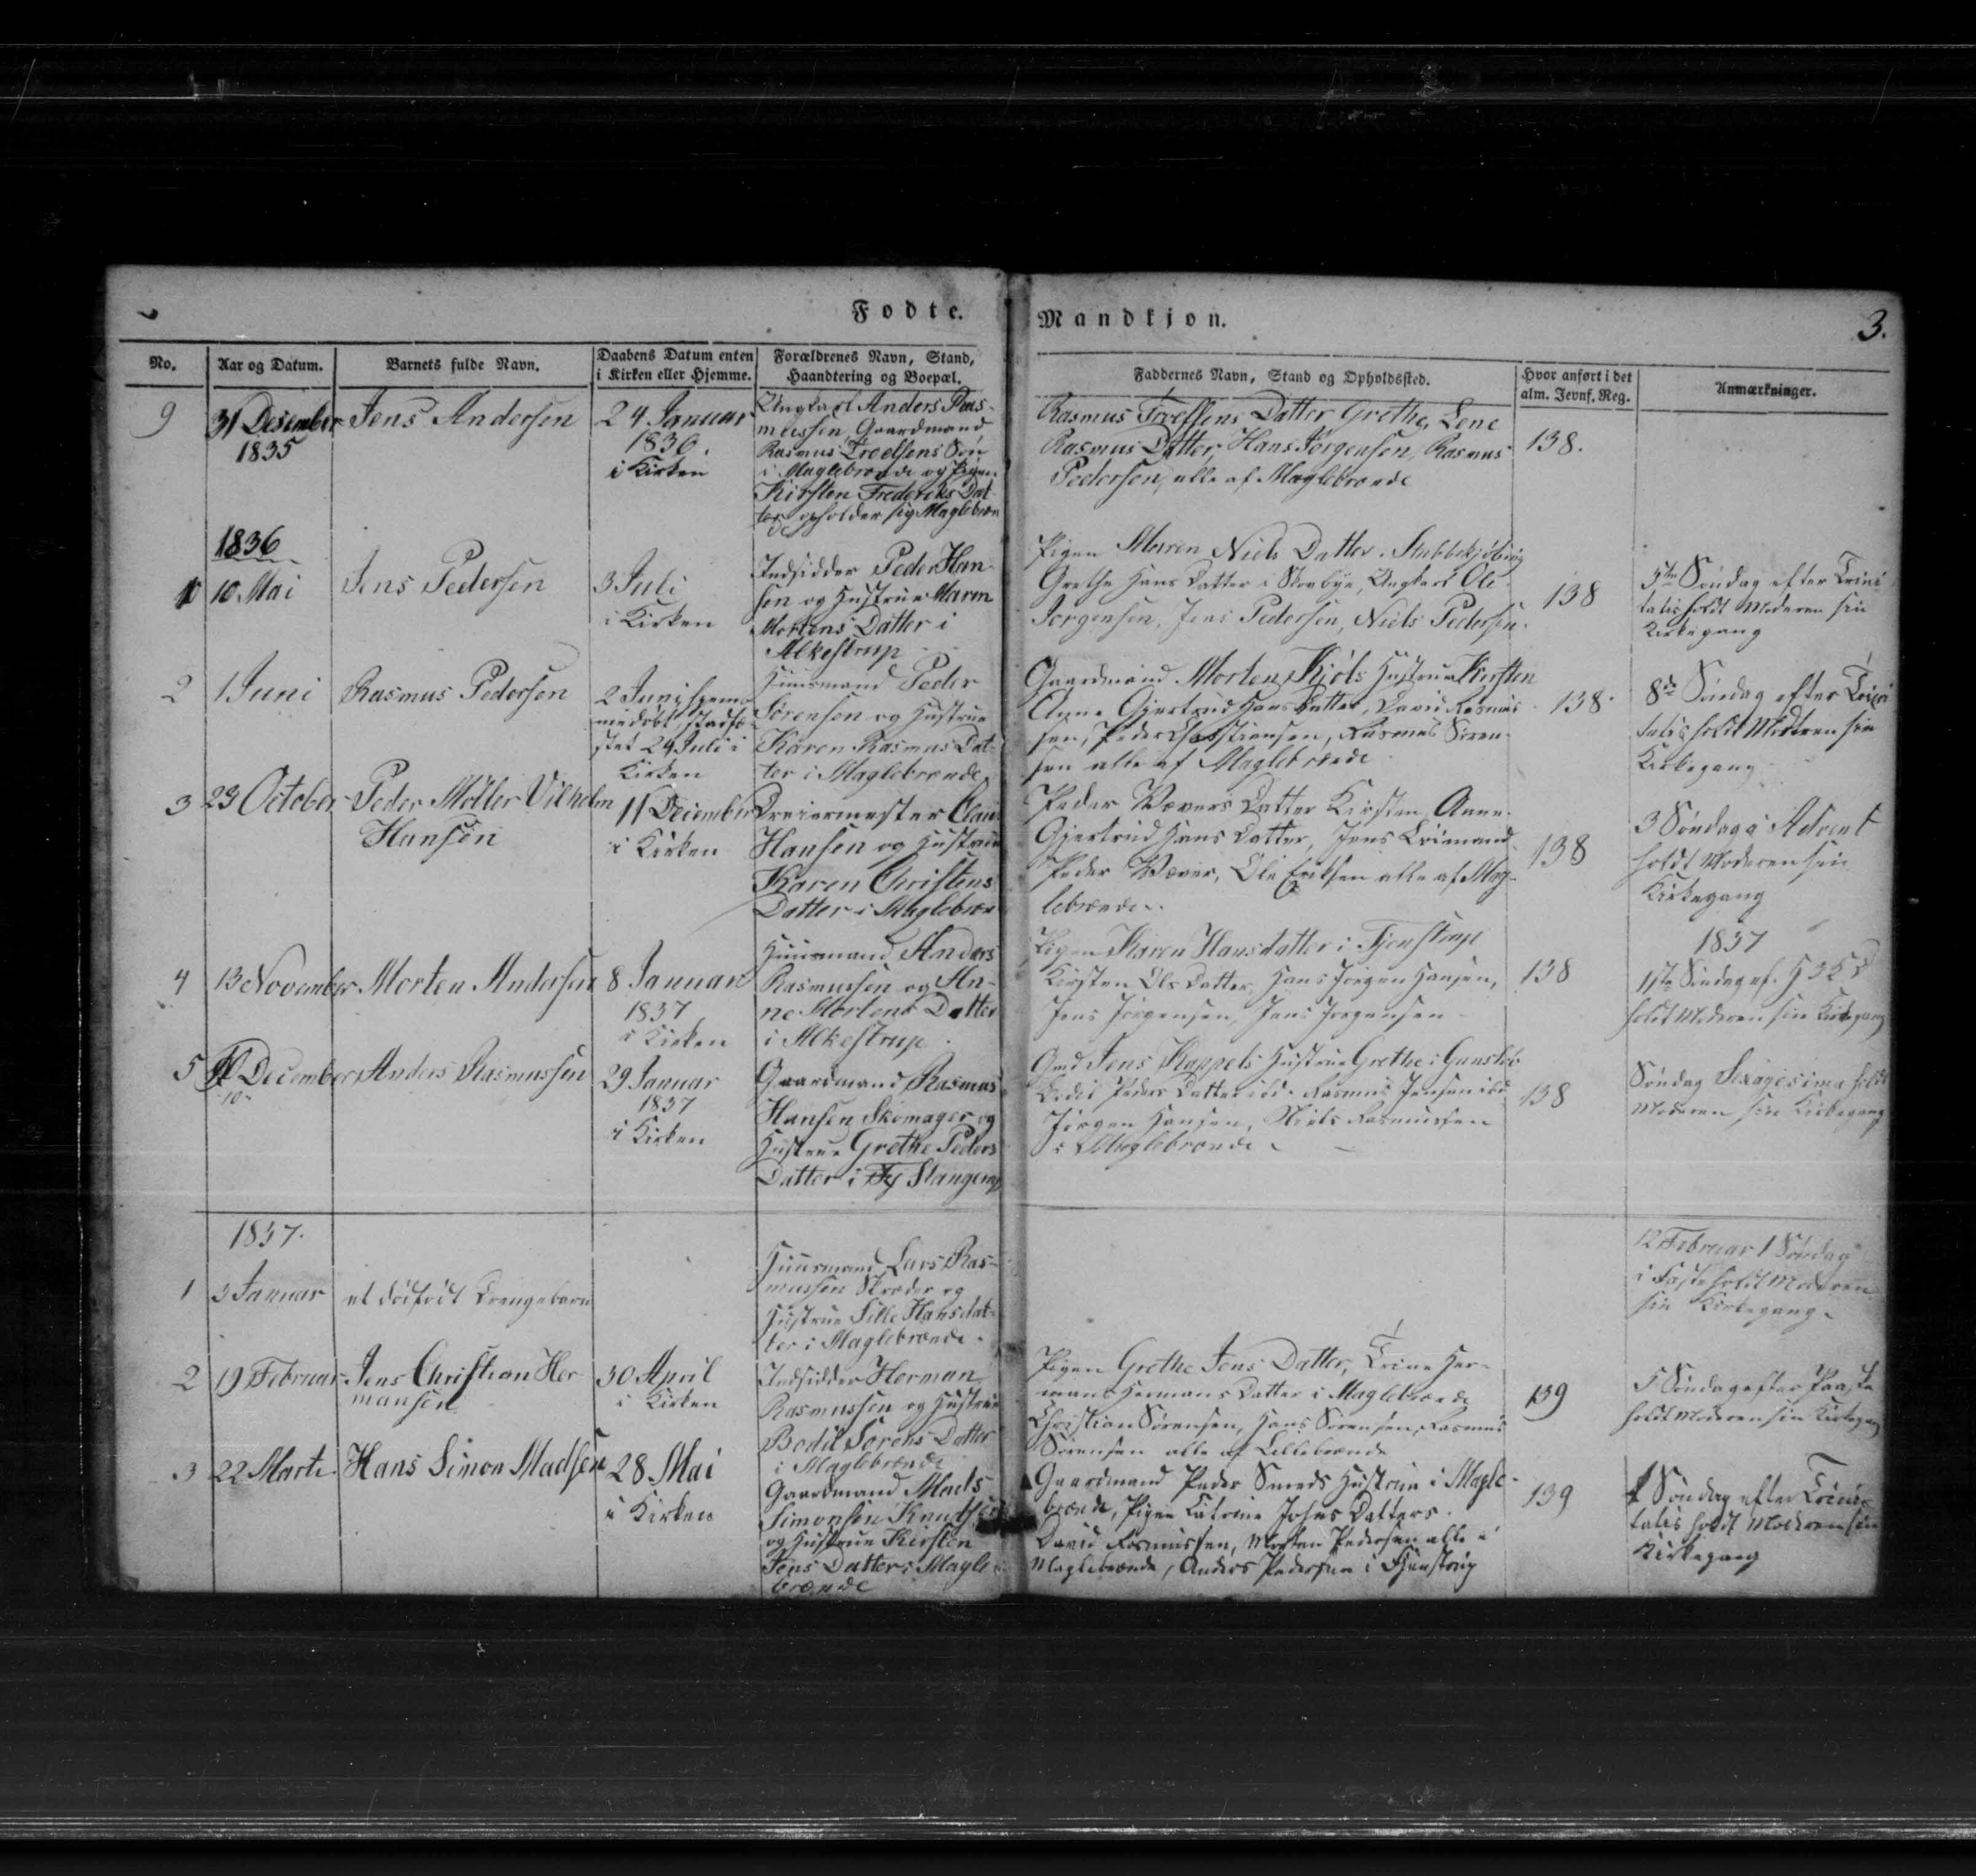 Fodte.
Mandkjon.
3.
No.
Aar og Datum.
Barnets fulde Navn.
Daabens Datum enten
i Kirken eller Hjemme.
Forældrenes Navn, Stand,
Haandtering og Boepæl.
Faddernes Navn, Stand og Opholdssted.
Hvor anført i det
alm. Jevnf. Reg.
Anmærkninger.
9
31 Desember
1835
Jens Andersen
24 Januar
1836
i Kirken
Ungkarl Anders Ras-
mussen, Gaardmand
Rasmus Troelsens Søn
i Maglebrænde og Pigen
Kirsten Frederiks Dat-
ter opholder sig Maglebræn
de
Rasmus Troelsens Datter Grethe, Lene
Rasmus Datter, Hans Jørgensen, Rasmus
Pedersen, alle af Maglebrænde
138.
1836
1
10 Mai
Jens Pedersen
3 Juli
i Kirken
Indsidder Peder Han-
sen og Hustrue Maren
Mortens Datter i
Alkestrup
Pigen Maren Niels Datter. Stubbekjøbing
Grethe Hans Datter i Skrabye, Ungkarl Ole
Jørgensen, Jens Pedersen, Niels Pedersen.
138
5te Søndag efter Trini
tatis holdt Moderen sin
Kirkegang
2
1 Juni
Rasmus Pedersen
2 Juni hjem-
medøbt stadfæ-
stet 24 Juli i
Kirken
Huusmand Peder
Sørensen og Hustrue
Karen Rasmus Dat-
ter i Maglebrænde
Gaardmand Morten Kjøls Hustrue Kirsten
Anne Gjertrud Hans Datter, David Rasmus-
sen, Peder Christiansen, Rasmus Søren-
sen alle af Maglebrænde
138.
8de Søndag efter Trini
tatis holdt Moderen sin
Kirkegang
3
23 October
Peder Møller Vilhelm
Hansen
11 December
i Kirken
Dreiermester Claus
Hansen og Hustrue
Karen Christens
Datter i Maglebræn
Peder Vævers Datter Kirsten, Anne
Gjertrud Hans Datter, Jens
Peder Væver, Ole Eriksen alle af Mag-
lebrænde.
138
3 Søndag i Advent
holdt Moderen sin
Kirkegang
4
13 November
Morten Andersen
8 Januar
1837
i Kirken
Huusmand Anders
Rasmussen og An-
ne Mortens Datter
i Alkestrup.
Pigen Karen Hansdatter i Tjenstrup
Kirsten Ols Datter, Hans Jørgen Hansen,
Jens Jørgensen, Jens Jørgensen
138
1837
1ste Søndag ef. H 3 K D
holdt Moderen sin Kirkegang
5
December
10
Anders Rasmussen
29 Januar
1837
i Kirken
Gaardmand Rasmus
Hansen Skomager og
Hustrue Grethe Peders
Datter i Stangerup
Gmd Jens Kappels Hustrue Grethe i
Bodil Peders Datter Rasmus Jensen
Jørgen Hansen, Niels Rasmussen
i Maglebrænde
138
Søndag Sexagesima holdt
Moderen sin Kirkegang
1837.
1
3 Januar
et dødfødt Drengebarn
Huusmand Lars Ras-
mussen Skræder og
Hustrue Sille Hansdat-
ter i Maglebrænde.
12 Februar 1 Søndag
i Faste holdt Moderen
sin Kirkegang.
2
19 Februar
Jens Christian Her-
mansen
30 April
i Kirken
Indsidder Herman
Rasmussen og Hustrue
Bodil Sørens Datter
i Maglebrænde
Pigen Grethe Jens Datter, Trine Her-
mans Hermans Datter i Maglebrænde
Christian Sørensen, Hans Sørensen, Rasmus
Sørensen alle af Lillebrænde
139
5 Søndag efter Paaske
holdt Moderen sin Kirkegang
3
22 Marts
Hans Simon Madsen
28 Mai
i Kirken
Gaardmand Mads
Simonsen Knudsen
og Hustrue Kirsten
Jens Datter i Magle
brænde
Gaardmand Peder Smeds Hustrue i Magle-
brænde, Pigen Catrine Johns Datters.
David Rasmussen, Morten Pedersen alle i
Maglebrænde, Anders Pedersen i Tjenstrup
139
1 Søndag efter Trini-
tatis holdt Moderen sin
Kirkegang